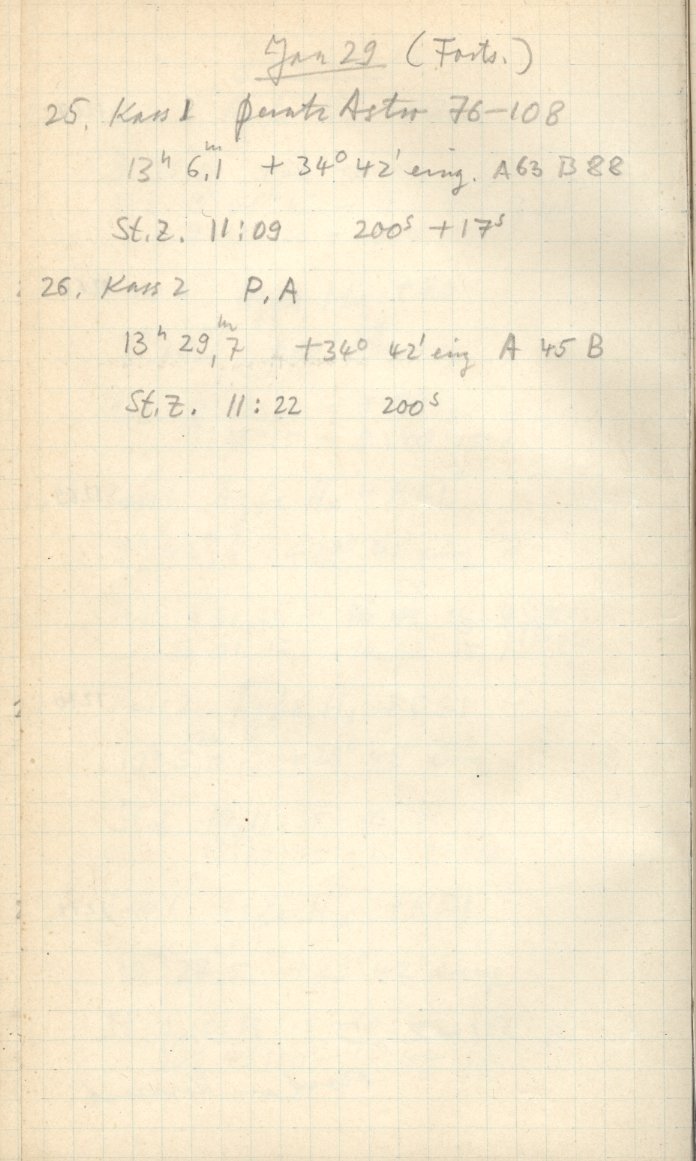 Jan 29 (Forts.)
25. Kass 1 Perutz Astro 76-108
13ʰ 6,1ᵐ +34° 42' eing. A 63 B 88
St.Z. 11:09 200ˢ +17ˢ
26. Kass 2 P.A
13ʰ 29,7ᵐ +34° 42' eing A 45 B
St.Z. 11:22 200ˢ